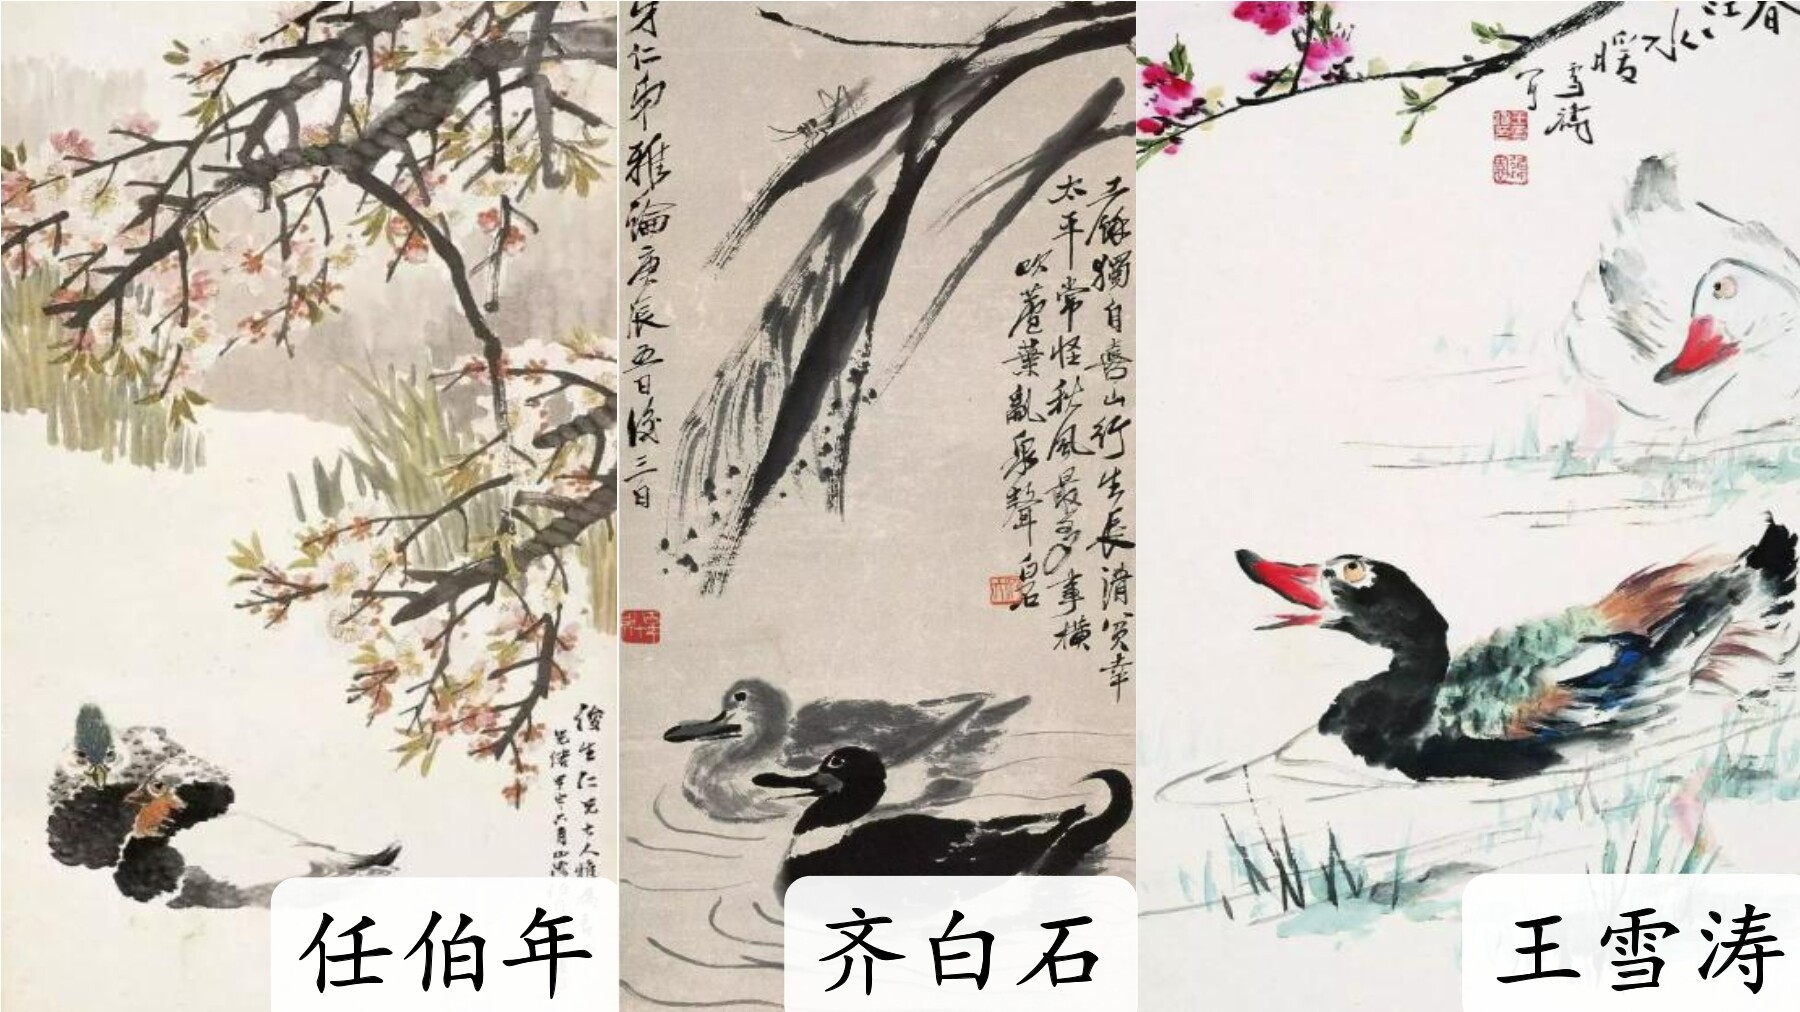 俊生仁兄大人雅
任伯年
牙仁弟雅論庚辰五月後三日
三餘獨自喜山行生長清貧幸
太平常怪秋風最多事橫
吹蘆葉亂泉聲 白石
齐白石
春江水暖
雪濤寫
王雪涛